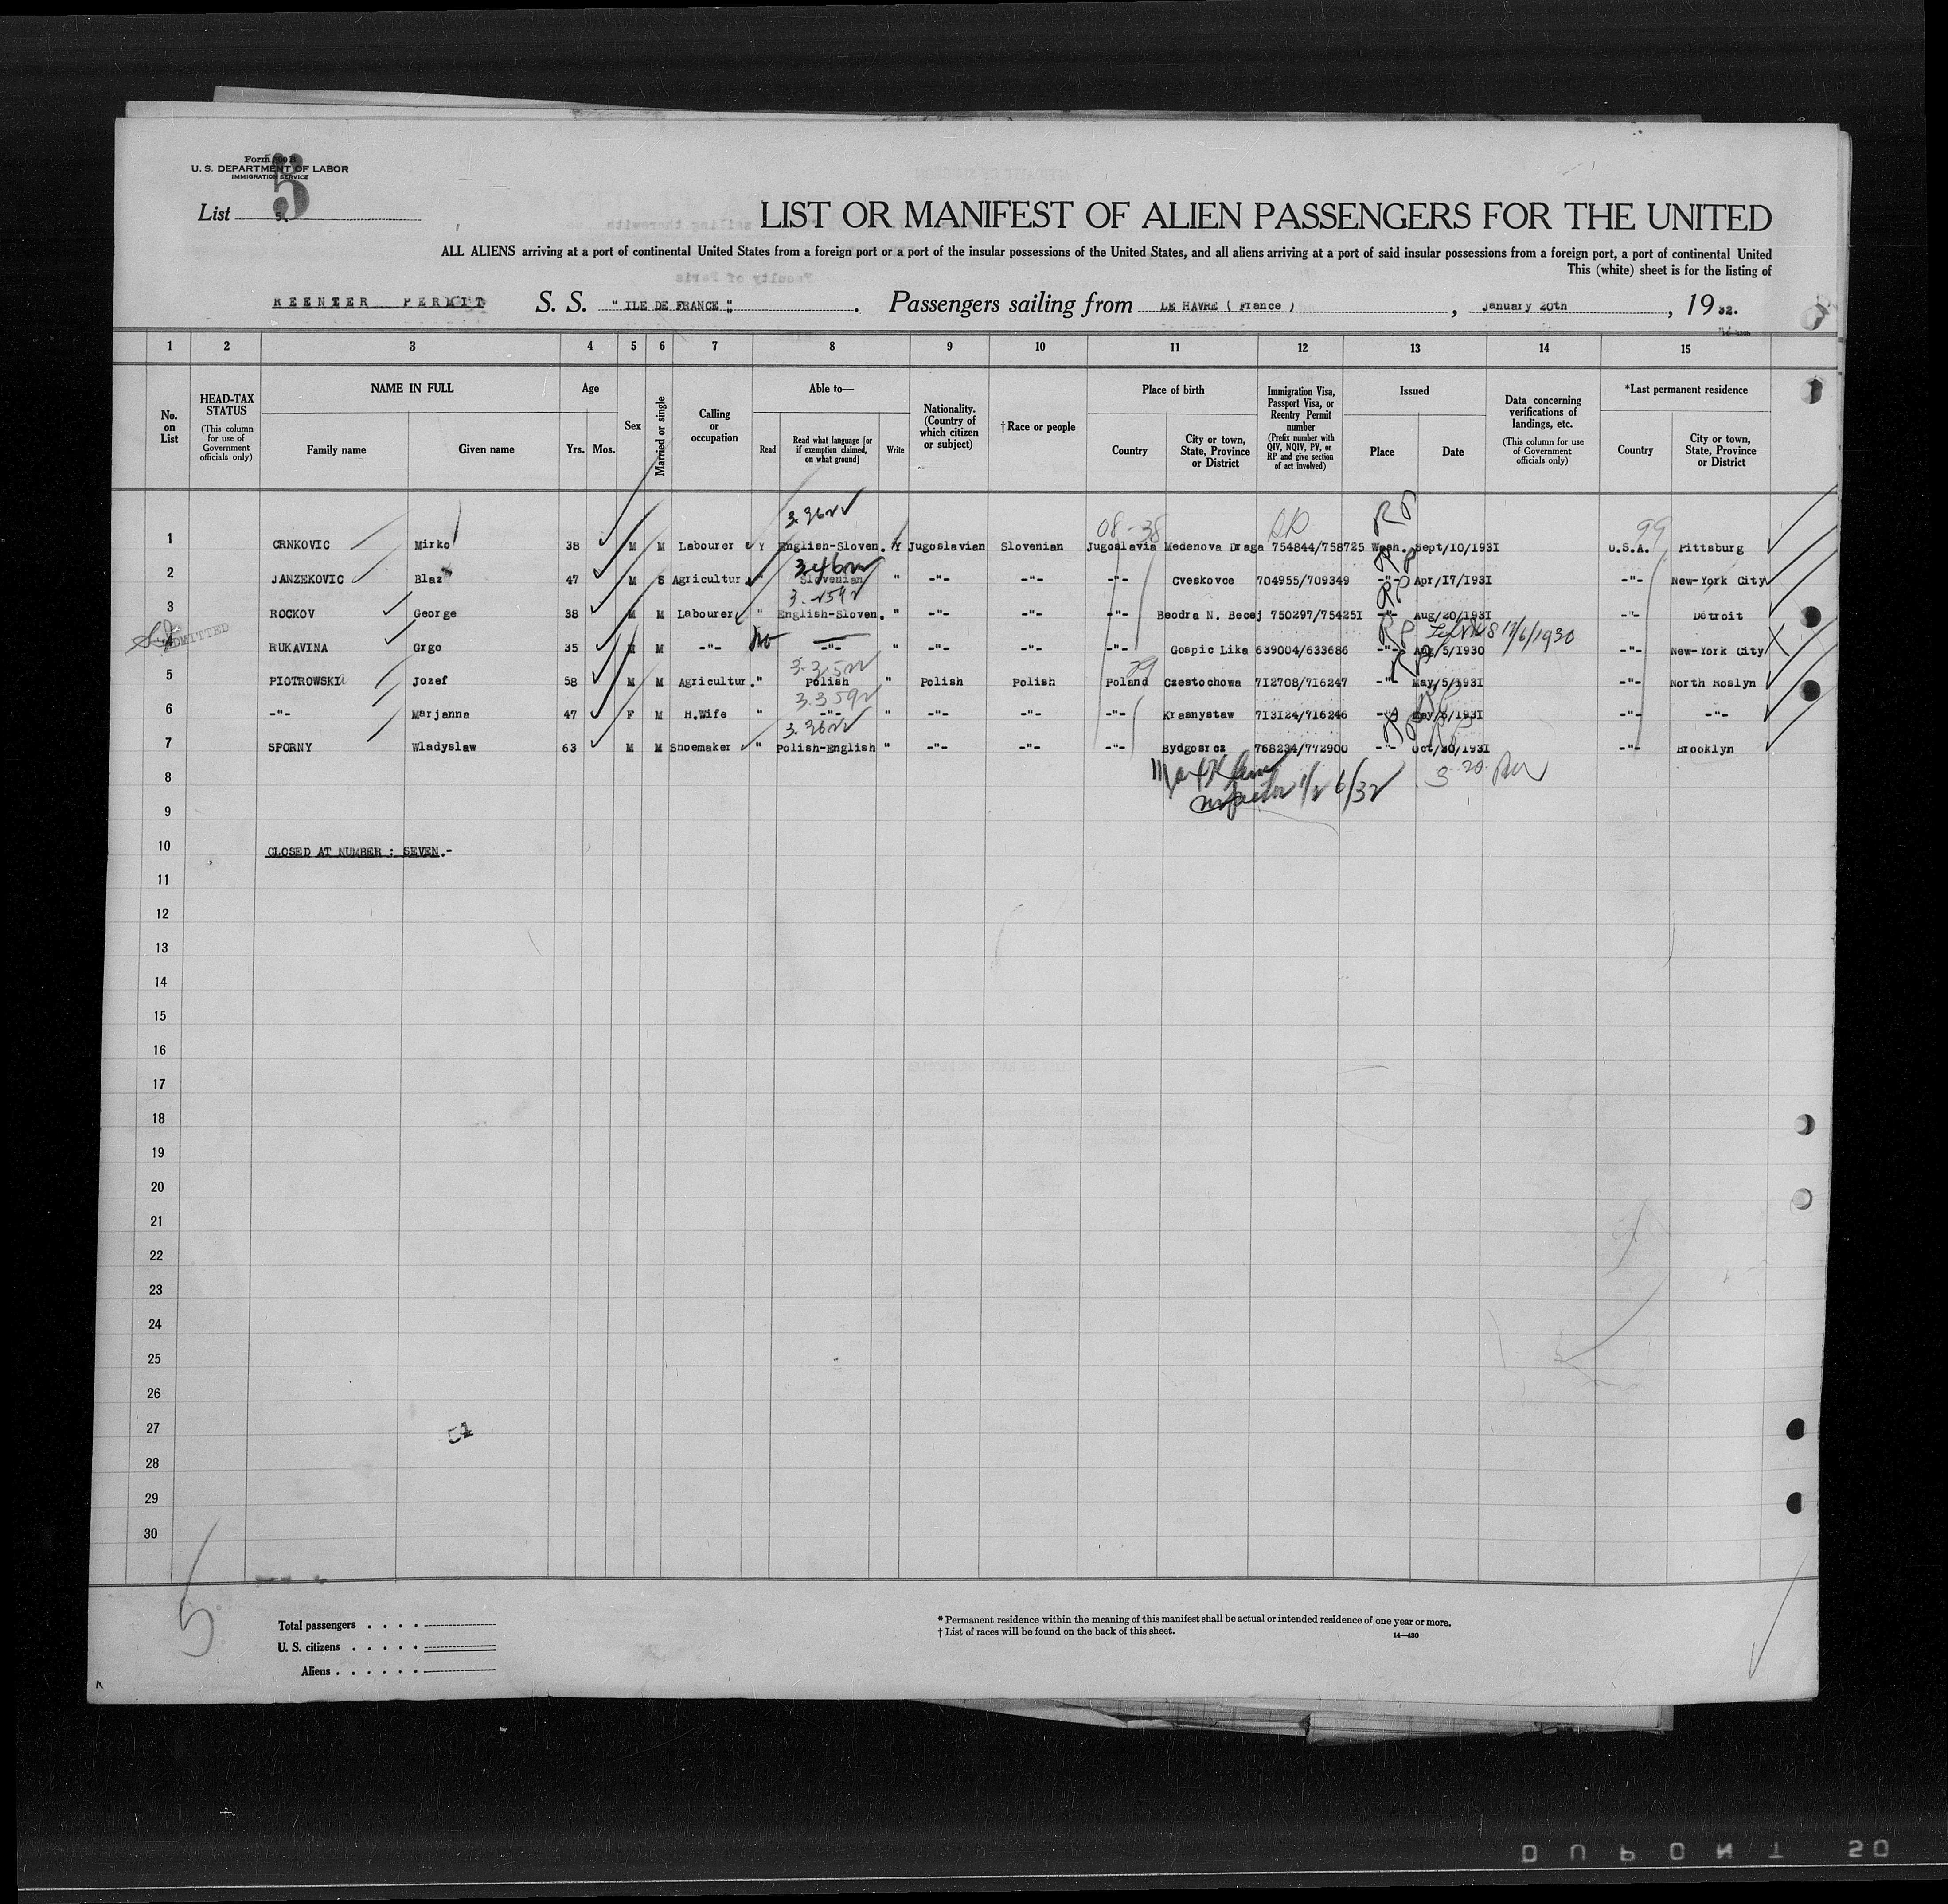 Form 500 B
U. S. DEPARTMENT OF LABOR
IMMIGRATION SERVICE
5
List 5.
LIST OR MANIFEST OF ALIEN PASSENGERS FOR THE UNITED
ALL ALIENS arriving at a port of continental United States from a foreign port or a port of the insular possessions of the United States, and all aliens arriving at a port of said insular possessions from a foreign port, a port of continental United
This (white) sheet is for the listing of
REENTER PERMIT S. S. " ILE DE FRANCE ". Passengers sailing from LE HAVRE ( France ) , January 20th , 19 32.
1 2 3 4 5 6 7 8 9 10 11 12 13 14 15
No. on List
HEAD-TAX STATUS (This column for use of Government officials only)
NAME IN FULL
Family name Given name
Age
Yrs. Mos.
Sex
Married or single
Calling or occupation
Able to—
Read Read what language [or if exemption claimed, on what ground] Write
Nationality. (Country of which citizen or subject)
†Race or people
Place of birth
Country City or town, State, Province or District
Immigration Visa, Passport Visa, or Reentry Permit number (Prefix number with QIV, NQIV, PV, or RP and give section of act involved)
Issued
Place Date
Data concerning verifications of landings, etc. (This column for use of Government officials only)
*Last permanent residence
Country City or town, State, Province or District
08-38 99
1 CRNKOVIC Mirko 38 M M Labourer Y English-Sloven. Y Jugoslavian Slovenian Jugoslavia Medenova Draga 754844/758725 Wash. Sept/10/1931 U.S.A. Pittsburg
2 JANZEKOVIC Blaz 47 M S Agricultur. " Slovenian " -"- -"- -"- Cveskovce 704955/709349 -"- Apr/17/1931 -"- New-York City
3 ROCKOV George 38 M M Labourer " English-Sloven. " -"- -"- -"- Beodra N. Becej 750297/754251 -"- Aug/20/1931 -"- Detroit
ADMITTED
4 RUKAVINA Grgo 35 M M -"- no -"- " -"- -"- -"- Gospic Lika 639004/633686 -"- Aug/5/1930 -"- New-York City
5 PIOTROWSKI Jozef 58 M M Agricultur. " Polish " Polish Polish Poland Czestochowa 712708/716247 -"- May/5/1931 -"- North Roslyn
6 -"- Marjanna 47 F M H.Wife " -"- " -"- -"- -"- Krasnystaw 713124/716246 -"- May/5/1931 -"- -"-
7 SPORNY Wladyslaw 63 M M Shoemaker " Polish-English " -"- -"- -"- Bydgosrcz 768234/772900 -"- Oct/30/1931 -"- Brooklyn
8
9
10 CLOSED AT NUMBER : SEVEN.-
11
12
13
14
15
16
17
18
19
20
21
22
23
24
25
26
27
28
29
30
5
Total passengers . . . .
U. S. citizens . . . . .
Aliens . . . . . .
* Permanent residence within the meaning of this manifest shall be actual or intended residence of one year or more.
† List of races will be found on the back of this sheet.
14—430
DUPONT 20